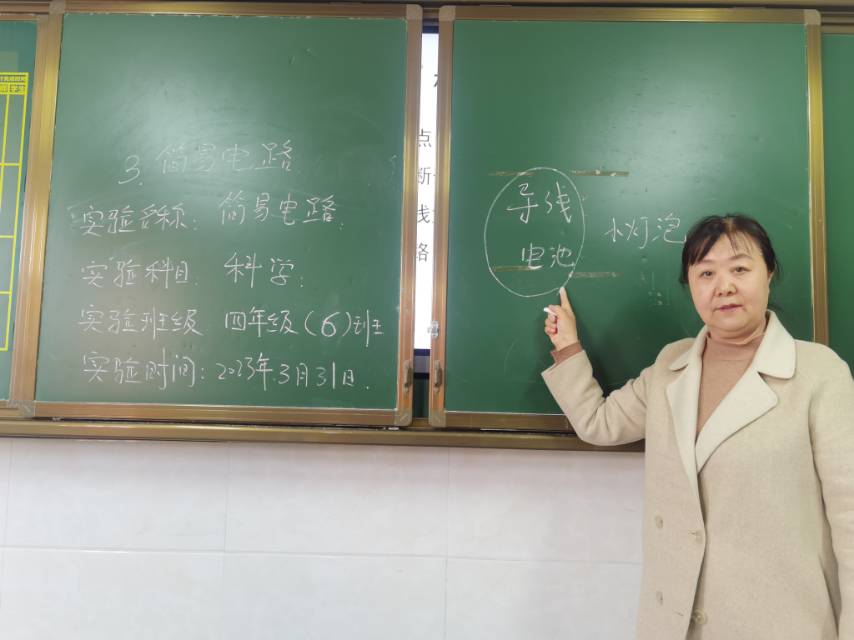 学生
3. 简易电路
实验名称: 简易电路.
实验科目: 科学.
实验班级 四年级(6)班
实验时间: 2023年.3月31日.
点
断
线
路
导线
电池
小灯泡